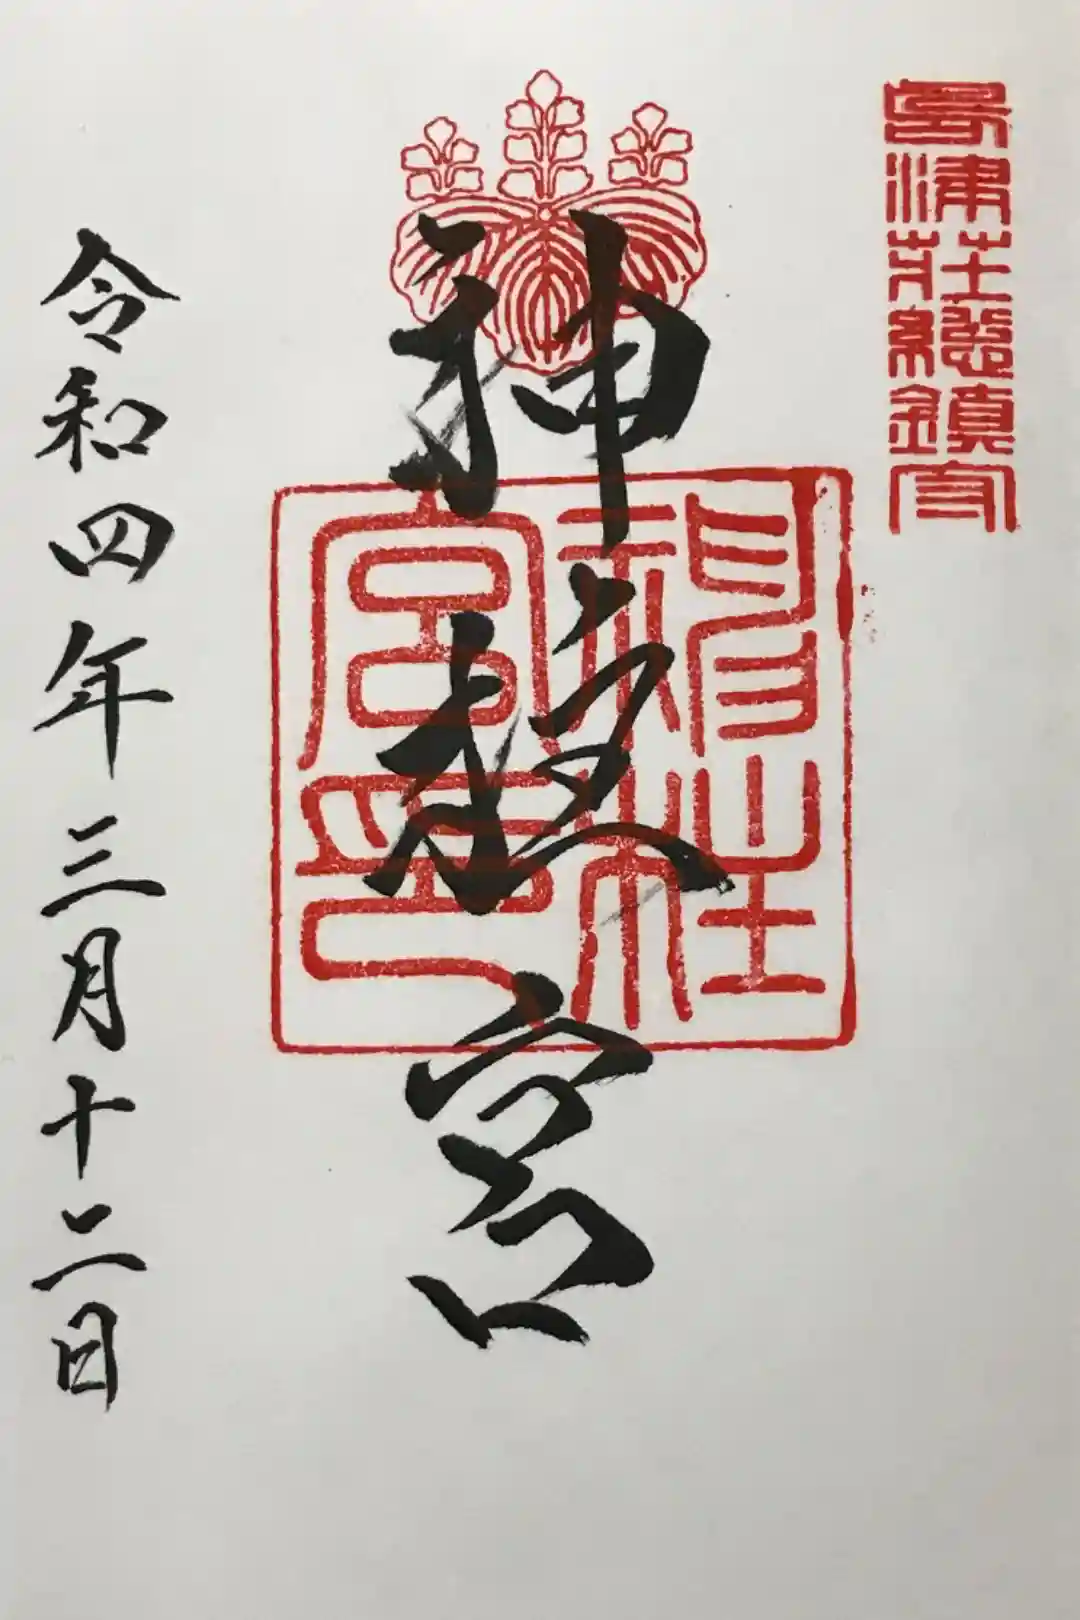 島津荘總鎮守
神柱宮
神柱宮印
令和四年三月十二日